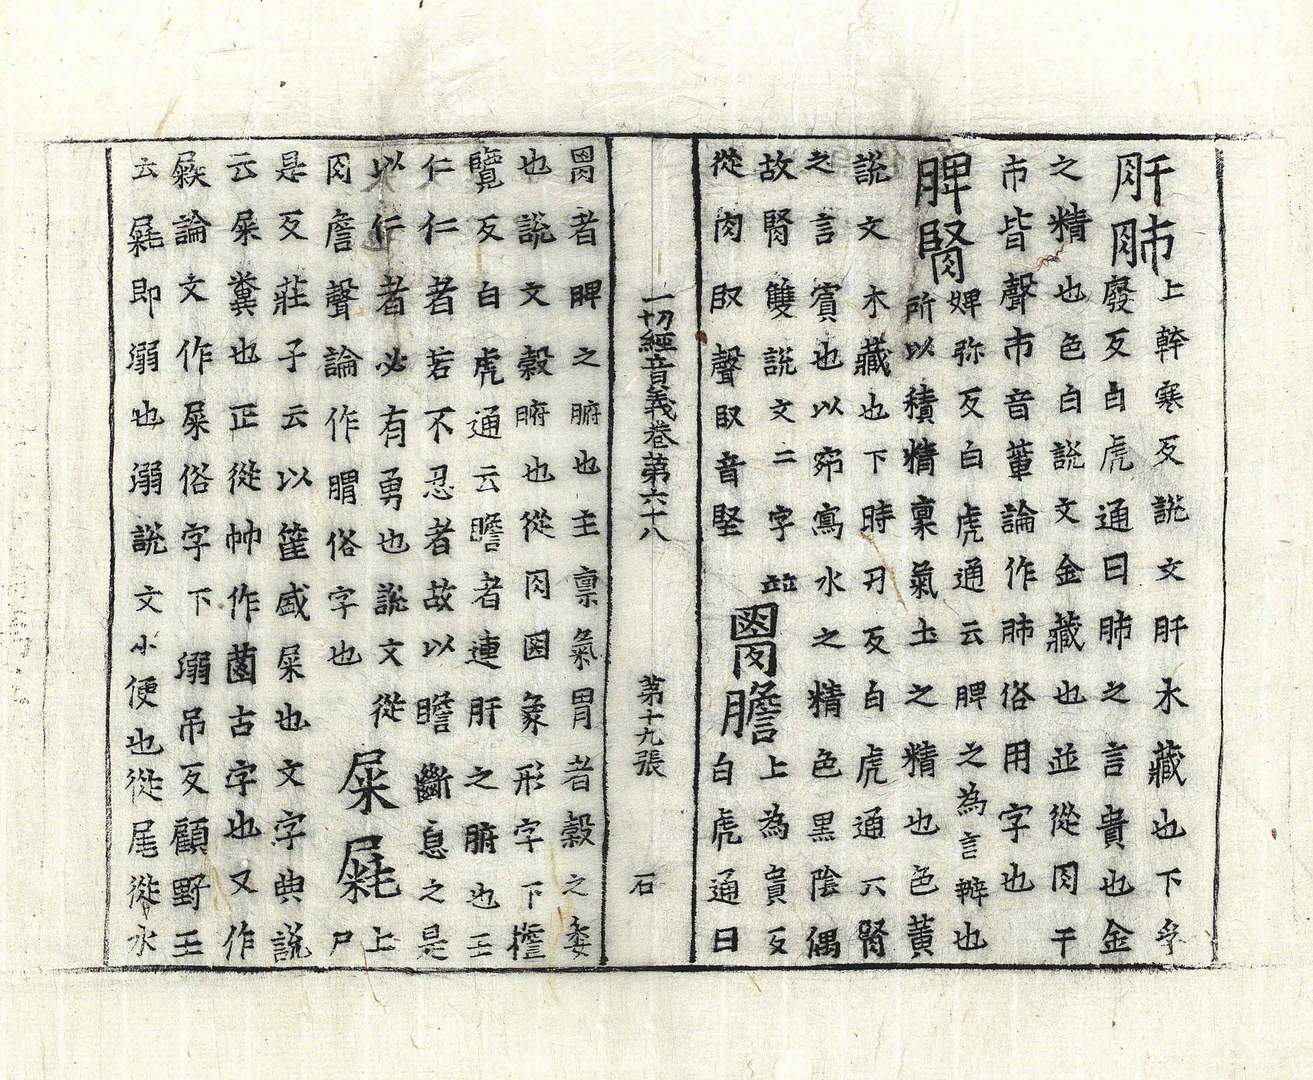 肝肺上幹寒反說文肝木藏也下孚
廢反白虎通曰肺之言貴也金
之精也色白說文金藏也並從肉干
市皆聲市音葷論作肺俗用字也
脾腎婢弥反白虎通云脾之為言裨也
所以積精稟氣土之精也色黃
說文木藏也下時刃反白虎通云腎
之言賓也以竅寫水之精色黑陰偶
故腎雙說文二字並
從肉臤聲臤音堅
𦞅膽上為貴反
白虎通曰
胃者脾之腑也主稟氣胃者穀之委
也說文穀腑也從肉𡇒象形字下擔
覽反白虎通云瞻者連肝之腑也主
仁仁者若不忍者故以瞻斷息之是
以仁者必有勇也說文從
肉詹聲論作膶俗字也
屎𡲕上
尸
是反莊子云以筐盛屎也文字典說
云屎糞也正從艸作菌古字也又作
㞏論文作屎俗字下溺吊反顧野王
云𡲕即溺也溺說文小便也從尾從水
一切經音義卷第六十八
第十九張
石